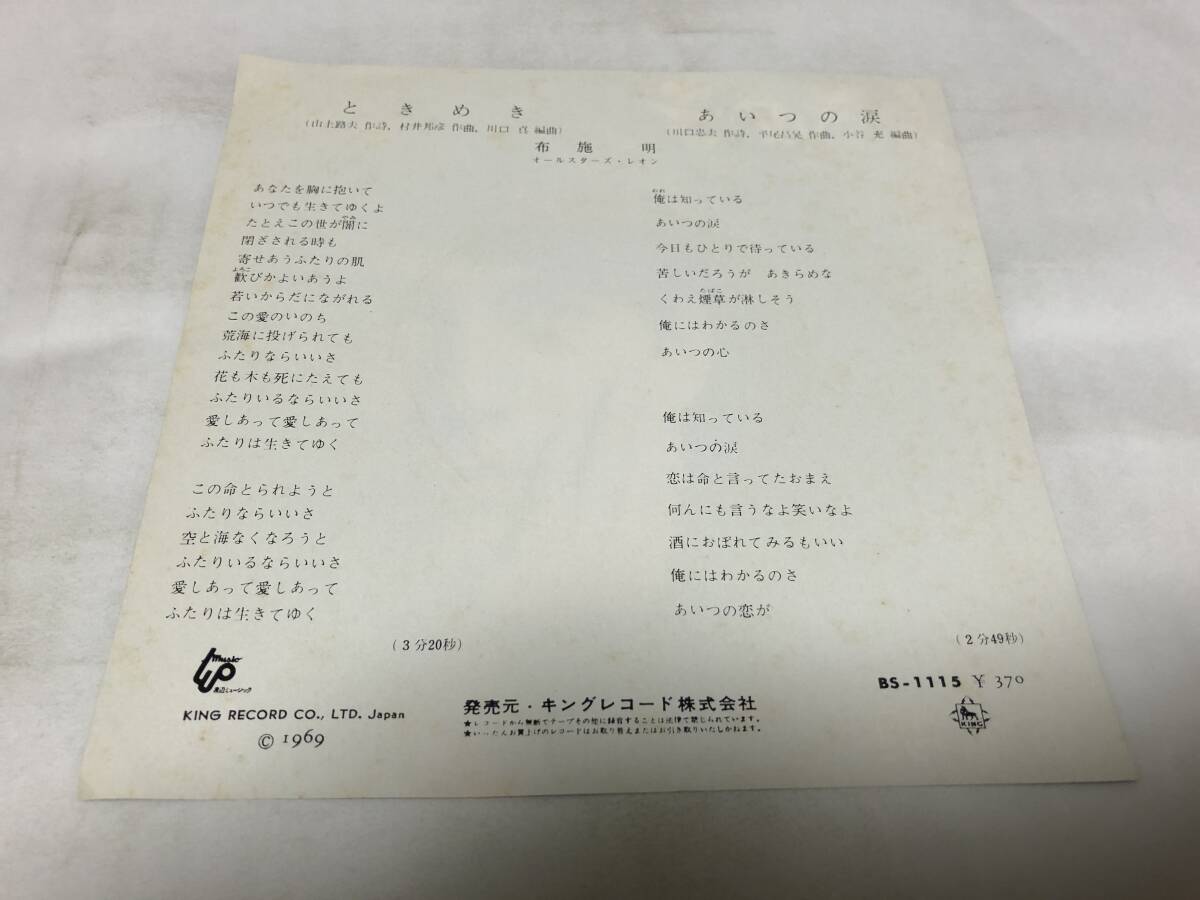 ときめき
(山上路夫 作詩, 村井邦彦 作曲, 川口 真 編曲)
あいつの涙
(川口忠夫 作詩, 平尾昌晃 作曲, 小谷 充 編曲)
布施 明
オールスターズ・レオン
あなたを胸に抱いて
いつでも生きてゆくよ
たとえこの世が闇に
やみ
閉ざされる時も
寄せあうふたりの肌
歓びかよいあうよ
よろこ
若いからだにながれる
この愛のいのち
荒海に投げられても
ふたりならいいさ
花も木も死にたえても
ふたりいるならいいさ
愛しあって愛しあって
ふたりは生きてゆく
この命とられようと
ふたりならいいさ
空と海なくなろうと
ふたりいるならいいさ
愛しあって愛しあって
ふたりは生きてゆく
(3分20秒)
おれ
俺は知っている
あいつの涙
今日もひとりで待っている
苦しいだろうが あきらめな
たばこ
くわえ煙草が淋しそう
俺にはわかるのさ
あいつの心
俺は知っている
あいつの涙
恋は命と言ってたおまえ
何んにも言うなよ笑いなよ
酒におぼれてみるもいい
俺にはわかるのさ
あいつの恋が
(2分49秒)
music
渡辺ミュージック
KING RECORD CO., LTD. Japan
© 1969
発売元・キングレコード株式会社
★レコードから無断でテープその他に録音することは法律で禁じられています。
★いったんお買上げのレコードはお取り替えまたはお引き取りいたしかねます。
BS-1115 ¥370
KING